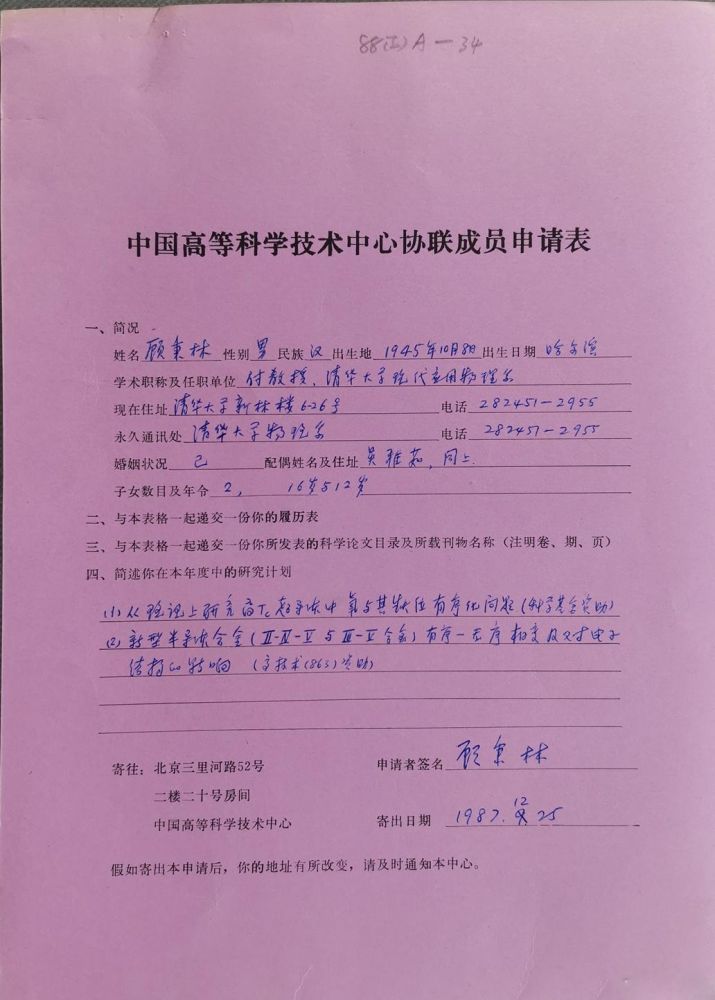 88(II)A-34
中国高等科学技术中心协联成员申请表
一、简况
姓名 顾秉林 性别 男 民族 汉 出生地 1945年10月8日 出生日期 哈尔滨
学术职称及任职单位 付教授、清华大学现代应用物理系
现在住址 清华大学新林楼626号 电话 282451-2955
永久通讯处 清华大学物理系 电话 282451-2955
婚姻状况 己 配偶姓名及住址 吴雅茹,同上.
子女数目及年令 2, 16岁与12岁
二、与本表格一起递交一份你的履历表
三、与本表格一起递交一份你所发表的科学论文目录及所载刊物名称(注明卷、期、页)
四、简述你在本年度中的研究计划
(1) 从理论上研究高Tc超导体中氧与其缺位有序化问题(科学基金资助)
(2) 新型半导体合金(III-V与合金)有序-无序相变及对电子
结构的影响 (高技术(863)资助)
寄往:北京三里河路52号 申请者签名 顾秉林
二楼二十号房间
中国高等科学技术中心 寄出日期 1987.12 25
假如寄出本申请后,你的地址有所改变,请及时通知本中心。